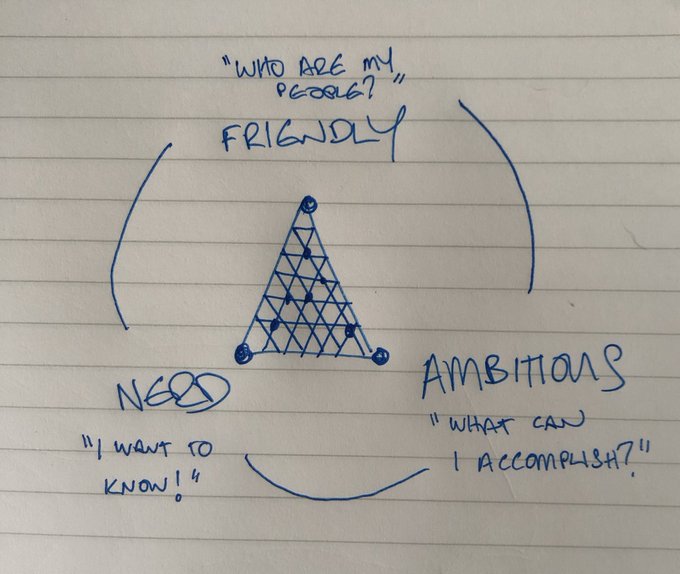 "WHO ARE MY
PEOPLE?"
FRIENDLY
NERD
"I WANT TO
KNOW!"
AMBITIOUS
"WHAT CAN
I ACCOMPLISH?"